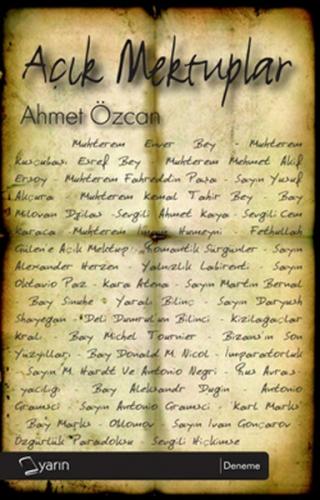 Açık Mektuplar
Ahmet Özcan
Muhterem Enver Bey - Muhterem
Kuşçubaşı Eşref Bey - Muhterem Mehmet Akif
Ersoy - Muhterem Fahreddin Paşa - Sayın Yusuf
Akçura - Muhterem Kemal Tahir Bey - Bay
Milovan Djilas - Sevgili Ahmet Kaya - Sevgili Cem
Karaca - Muhterem İmam Humeyni - Fethullah
Gülen'e Açık Mektup - Romantik Sürgünler - Sayın
Alexander Herzen - Yalnızlık Labirenti - Sayın
Oktavio Paz - Kara Atena - Sayın Martin Bernal
- Bay Sinuhe - Yaralı Bilinç - Sayın Daryush
Shayegan - Deli Dumrul'un Bilinci - Kızılağaçlar
Kralı - Bay Michel Tournier - Bizans'ın Son
Yüzyılları - Bay Donald M. Nicol - İmparatorluk
- Sayın M. Hardt Ve Antonio Negri - Rus Avras-
yacılığı - Bay Aleksandr Dugin - Antonio
Gramsci - Sayın Antonio Gramsci - Karl Marks
- Bay Marks - Oblomov - Sayın Ivan Gonçarov
Özgürlük Paradoksu - Sevgili Hiçkimse
yarın
Deneme